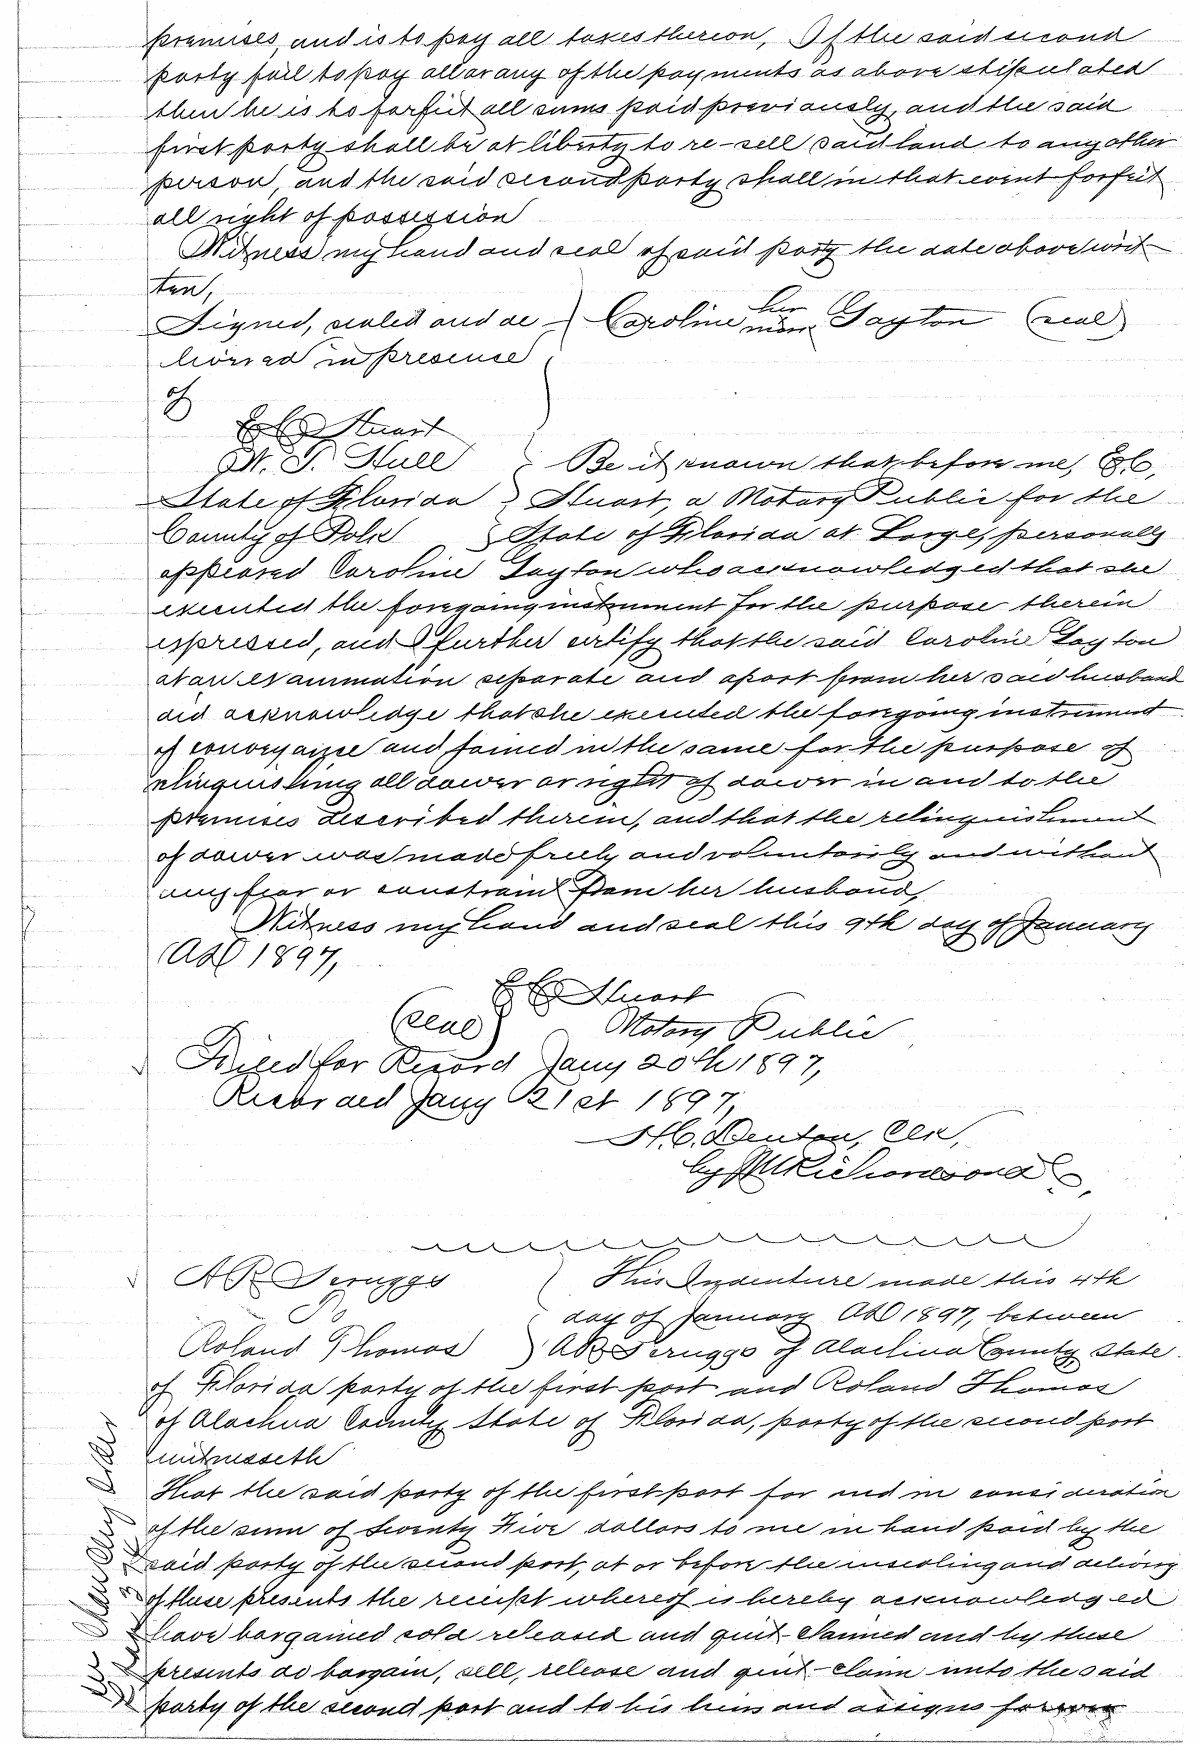 premises, and is to pay all taxes thereon, If the said second
party fail to pay all or any of the payments as above stipulated
then he is to forfeit all sums paid previously, and the said
first party shall be at liberty to re-sell said land to any other
person, and the said second party shall in that event forfeit
all right of possession
Witness my hand and seal of said party the date above writ-
ten,
Signed, sealed and de- Caroline her mark Gayton (seal)
livered in presence
of
E C Stuart
W. T. Hull Be it known that before me, E.C.
State of Florida Stuart, a Notary Public for the
County of Polk State of Florida at Large, personally
appeared Caroline Gayton who acknowledged that she
executed the foregoing instrument for the purpose therein
expressed, and I further certify that the said Caroline Gayton
at an examination separate and apart from her said husband
did acknowledge that she executed the foregoing instrument
of conveyance and joined in the same for the purpose of
relinquishing all dower or right of dower in and to the
premises described therein, and that the relinquishment
of dower was made freely and voluntarily and without
any fear or constraint from her husband,
Witness my hand and seal this 9th day of January
AD 1897,
E C Stuart
(seal) Notary Public
Filed for Record Jany 20th 1897,
Recorded Jany 21st 1897,
H.C. Denton, Clk,
by
A R Scruggs This Indenture made this 4th
To day of January AD 1897, between
Roland Thomas A R Scruggs of Alachua County State
of Florida party of the first part and Roland Thomas
of Alachua County State of Florida, party of the second part
witnesseth
That the said party of the first part for and in consideration
of the sum of Twenty Five dollars to me in hand paid by the
said party of the second part, at or before the insealing and delivery
of these presents the receipt whereof is hereby acknowledged
have bargained sold released and quit-claimed and by these
presents do bargain, sell, release and quit-claim unto the said
party of the second part and to his heirs and assigns forever